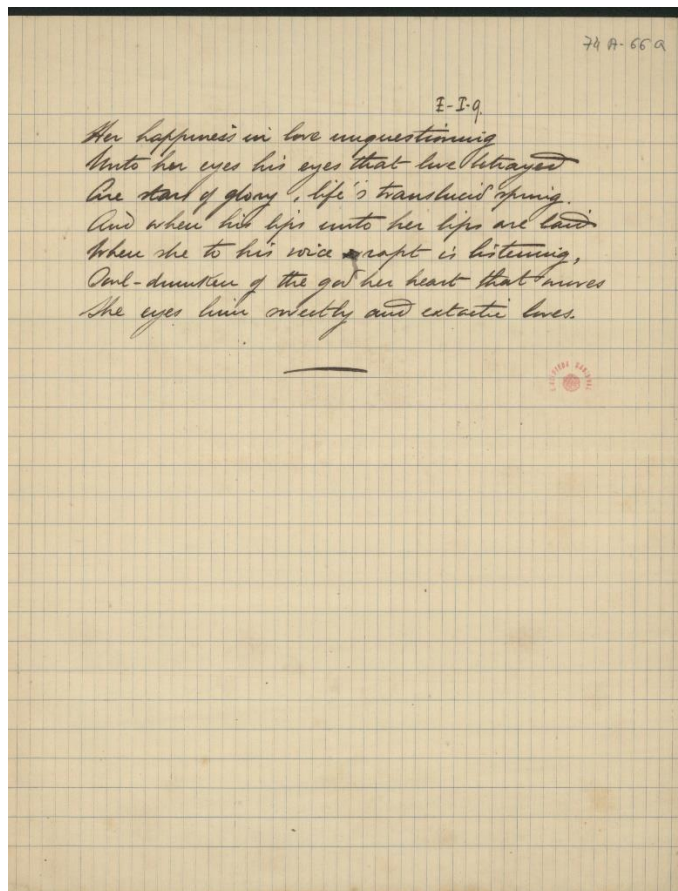 74A-66a
E-I-9.
Her happiness in love unquestioning
Unto her eyes his eyes that love betrayed
Are stars of glory, life's translucid spring.
And when his lips unto her lips are laid
When she to his voice rapt is listening,
Soul-drunken of the god her heart that moves
She eyes him sweetly and extactic loves.
BIBLIOTECA NACIONAL